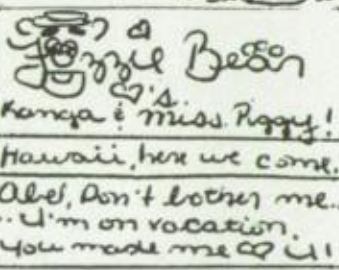 Fozzie Bear
♡'s
Kanga & Miss. Piggy!
Hawaii, here we come.
Abel, Don't bother me..
..I'm on vacation.
You made me ♡ U!